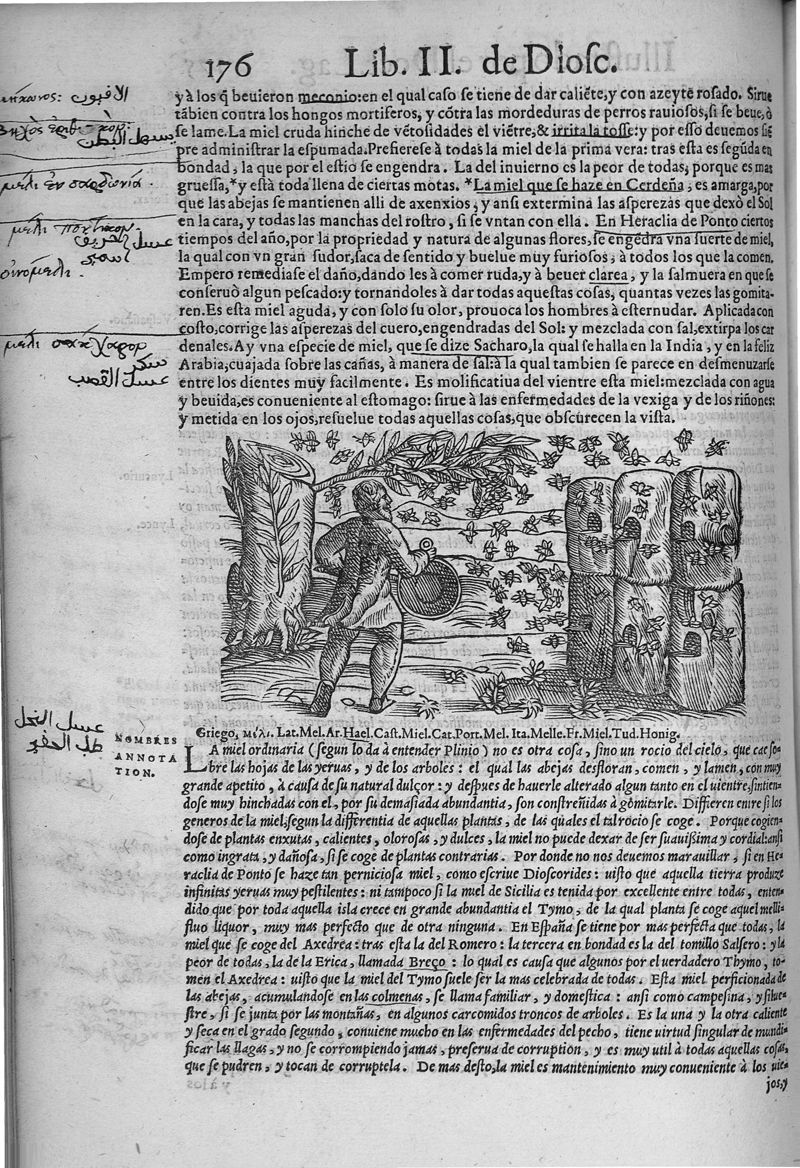 176 Lib. II. de Diosc.
y à los q̃ beuieron meconio: en el qual caso se tiene de dar caliẽte, y con azeyte rosado. Sirue
tãbien contra los hongos mortiferos, y cõtra las mordeduras de perros rauiosos, si se beue, ò
se lame. La miel cruda hinche de vẽtosidades el viẽtre, & irrita la tosse: y por esso deuemos siẽ
pre administrar la espumada. Prefierese à todas la miel de la prima vera: tras esta es segũda en
bondad, la que por el estio se engendra. La del inuierno es la peor de todas, porque es mas
gruessa, *y està toda llena de ciertas motas. *La miel que se haze en Cerdeña, es amarga, por
que las abejas se mantienen alli de axenxios, y ansi extermina las asperezas que dexò el Sol
en la cara, y todas las manchas del rostro, si se vntan con ella. En Heraclia de Ponto ciertos
tiempos del año, por la propriedad y natura de algunas flores, se engẽdra vna suerte de miel,
la qual con vn gran sudor, saca de sentido y buelue muy furiosos, à todos los que la comen.
Empero remediase el daño, dando les à comer ruda, y à beuer clarea, y la salmuera en que se
conseruò algun pescado: y tornandoles à dar todas aquestas cosas, quantas vezes las gomita-
ren. Es esta miel aguda, y con solo su olor, prouoca los hombres à esternudar. Aplicada con
costo, corrige las asperezas del cuero, engendradas del Sol: y mezclada con sal, extirpa los car
denales. Ay vna especie de miel, que se dize Sacharo, la qual se halla en la India, y en la feliz
Arabia, cuajada sobre las cañas, à manera de sal: à la qual tambien se parece en desmenuzarse
entre los dientes muy facilmente. Es molificatiua del vientre esta miel: mezclada con agua
y beuida, es conueniente al estomago: sirue à las enfermedades de la vexiga y de los riñones:
y metida en los ojos, resuelue todas aquellas cosas, que obscurecen la vista.
الافيون
مسهل البطن
μέλι ἐν σαρδωνία.
μέλι ποντικον.
عسل الخريف
οἰνομελι.
μέλι σακχαρον
سكر
عسل القصب
عسل النحل
NOMBRES
Griego, μέλι. Lat. Mel. Ar. Hael. Cast. Miel. Cat. Port. Mel. Ita. Melle. Fr. Miel. Tud. Honig.
ANNOTA
TION.
LA miel ordinaria (segun lo da à entender Plinio) no es otra cosa, sino un rocio del cielo, que cae so-
bre las hojas de las yeruas, y de los arboles: el qual las abejas desfloran, comen, y lamen, con muy
grande apetito, à causa de su natural dulçor: y despues de hauerle alterado algun tanto en el uientre, sintien-
dose muy hinchadas con el, por su demasiada abundantia, son constreñidas à gomitarle. Differen entre si los
generos de la miel, segun la differentia de aquellas plantas, de las quales el tal rocio se coge. Porque cogien-
dose de plantas enxutas, calientes, olorosas, y dulces, la miel no puede dexar de ser suauissima y cordial: ansi
como ingrata, y dañosa, si se coge de plantas contrarias. Por donde no nos deuemos marauillar, si en He-
raclia de Ponto se haze tan perniciosa miel, como escriue Dioscorides: uisto que aquella tierra produze
infinitas yeruas muy pestilentes: ni tampoco si la miel de Sicilia es tenida por excellente entre todas, enten-
dido que por toda aquella isla crece en grande abundantia el Tymo, de la qual planta se coge aquel melli-
fluo liquor, muy mas perfecto que de otra ninguna. En España se tiene por mas perfecta que todas, la
miel que se coge del Axedrea: tras esta la del Romero: la tercera en bondad es la del tomillo Salsero: y la
peor de todas, la de la Erica, llamada Breço: lo qual es causa que algunos por el uerdadero Thymo, to-
men el Axedrea: uisto que la miel del Tymo suele ser la mas celebrada de todas. Esta miel perficionada de
las abejas, acumulandose en las colmenas, se llama familiar, y domestica: ansi como campesina, y silue-
stre, si se junta por las montañas, en algunos carcomidos troncos de arboles. Es la una y la otra caliente
y seca en el grado segundo, conuiene mucho en las enfermedades del pecho, tiene virtud singular de mundi-
ficar las llagas, y no se corrompiendo jamas, preserua de corruption, y es muy util à todas aquellas cosas,
que se pudren, y tocan de corruptela. De mas desto, la miel es mantenimiento muy conueniente à los uie-
jos, y